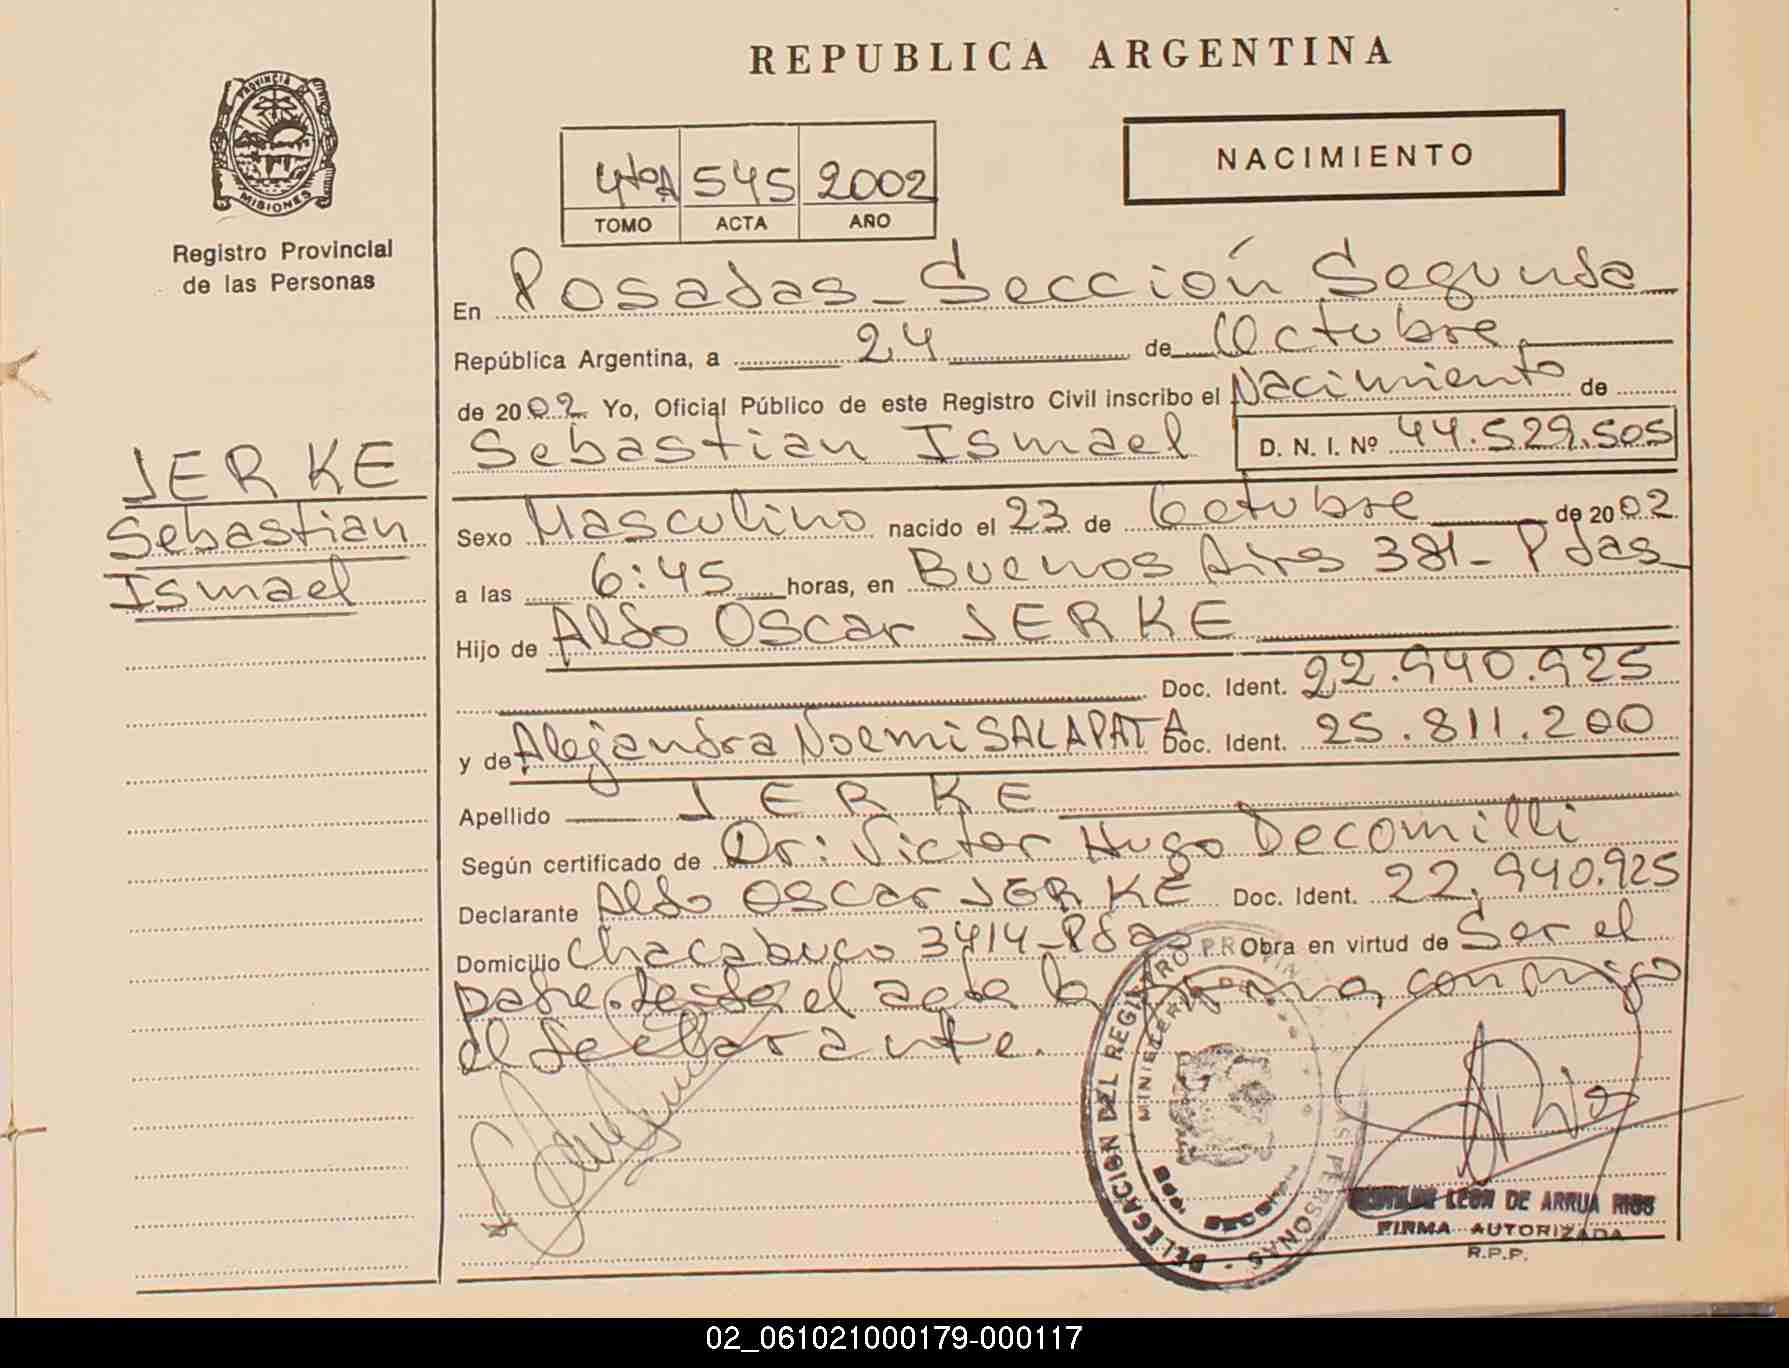 REPUBLICA ARGENTINA
PROVINCIA
MISIONES
Registro Provincial
de las Personas
4toA 545 2002
TOMO ACTA AÑO
NACIMIENTO
En Posadas - Sección Segunda
República Argentina, a 24 de Octubre
de 2002 Yo, Oficial Público de este Registro Civil inscribo el Nacimiento de
Sebastian Ismael D. N. I. Nº 44.529.505
JERKE
Sebastian
Ismael
Sexo Masculino nacido el 23 de Octubre de 2002
a las 6:45 horas, en Buenos Aires 381 - Pdas
Hijo de Aldo Oscar JERKE
Doc. Ident. 22.940.925
y de Alejandra Noemi SALAPATA Doc. Ident. 25.811.200
Apellido JERKE
Según certificado de Dr: Victor Hugo Decomilli
Declarante Aldo Oscar JERKE Doc. Ident. 22.940.925
Domicilio Chacabuco 3414 - Pdas Obra en virtud de Ser el
padre. Leída el acta la firma, conmigo
el declarante.
DELEGACION DEL REGISTRO PROVINCIAL DE LAS PERSONAS
MINISTERIO DE
LEON DE ARRUA RIOS
FIRMA AUTORIZADA
R.P.P.
02_061021000179-000117